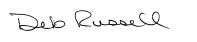 Deb Russell